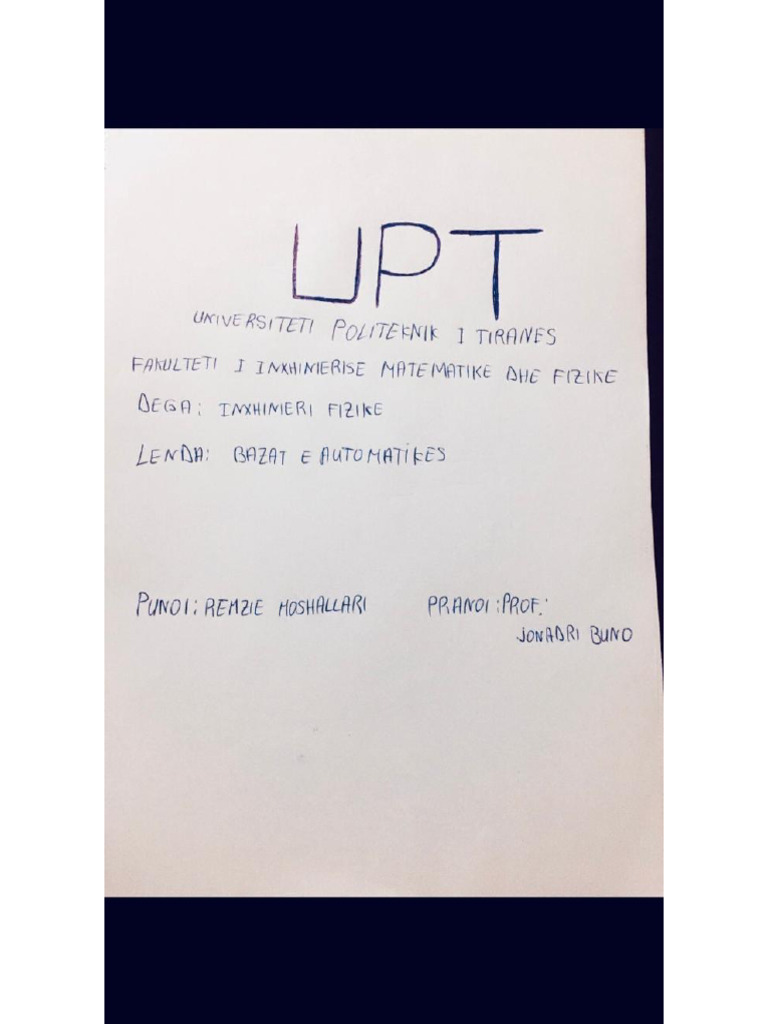 UPT
UNIVERSITETI POLITEKNIK I TIRANES
FAKULTETI I INXHINIERISE MATEMATIKE DHE FIZIKE
DEGA: INXHINIERI FIZIKE
LENDA: BAZAT E AUTOMATIKES
PUNOI: REMZIE MOSHALLARI PRANOI: PROF:
JONADRI BUNO